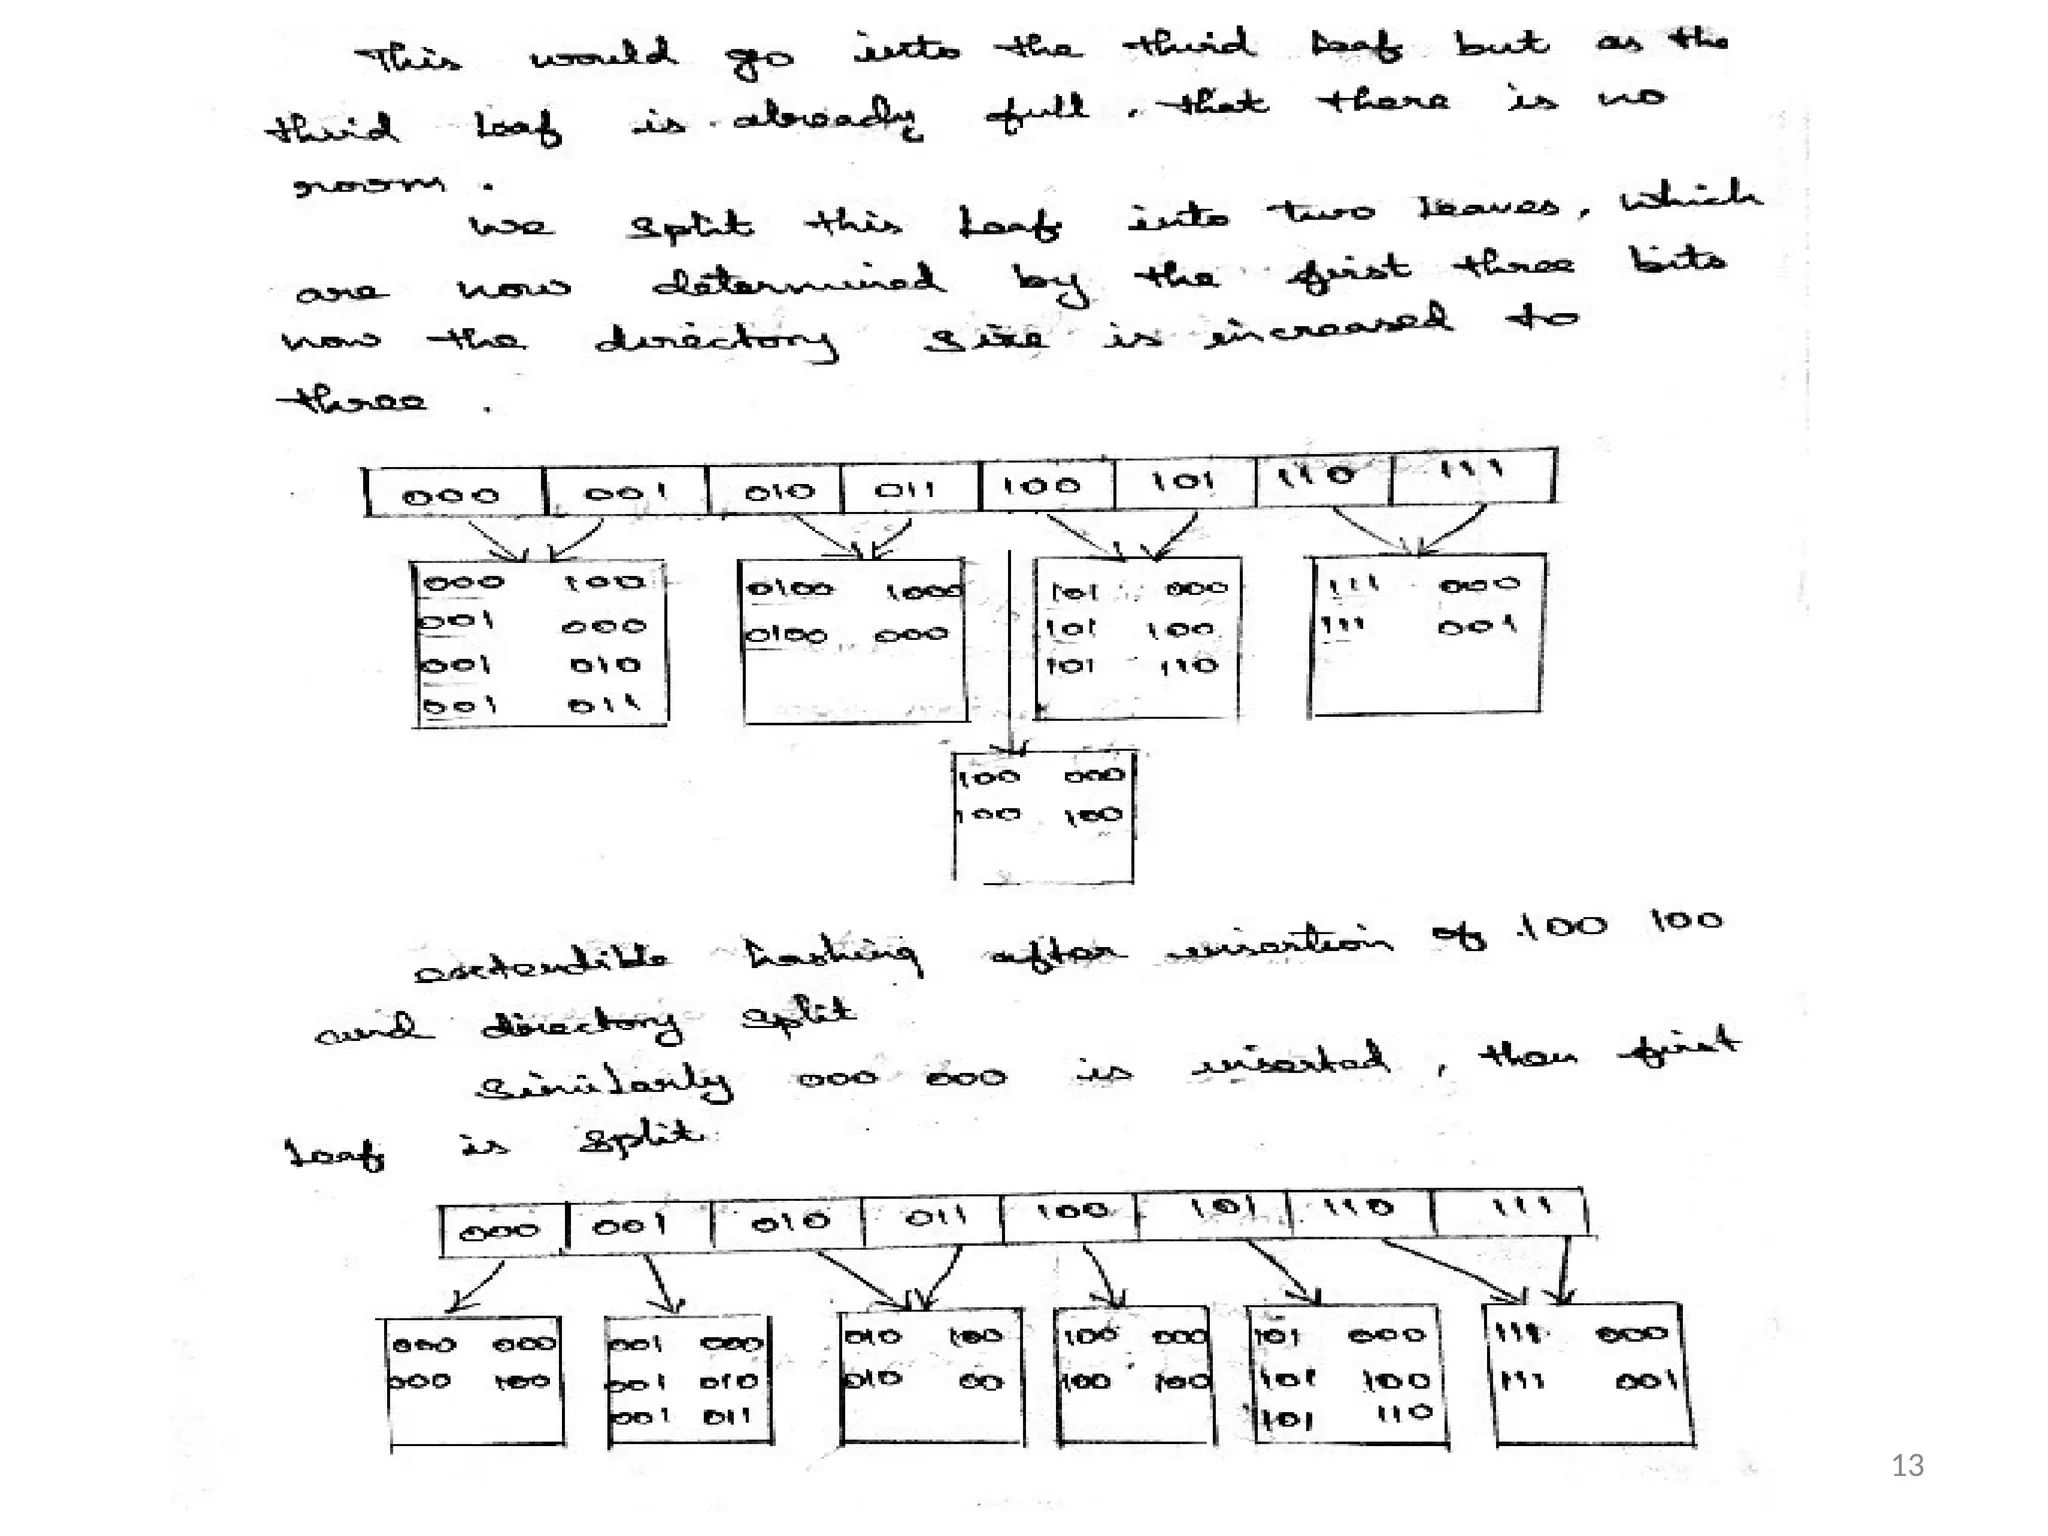 This would go into the third leaf but as the
third leaf is already full, that there is no
room.
We split this leaf into two leaves, which
are now determined by the first three bits
now the directory size is increased to
three.
000 001 010 011 100 101 110 111
000 100
001 000
001 010
001 011
0100 1000
0100 000
101 000
101 100
101 110
111 000
111 001
100 000
100 100
extendible hashing after insertion of 100 100
and directory split
Similarly 000 000 is inserted, then first
leaf is split
000 001 010 011 100 101 110 111
000 000
000 100
001 000
001 010
001 011
010 100
010 00
100 000
100 100
101 000
101 100
101 110
111 000
111 001
13